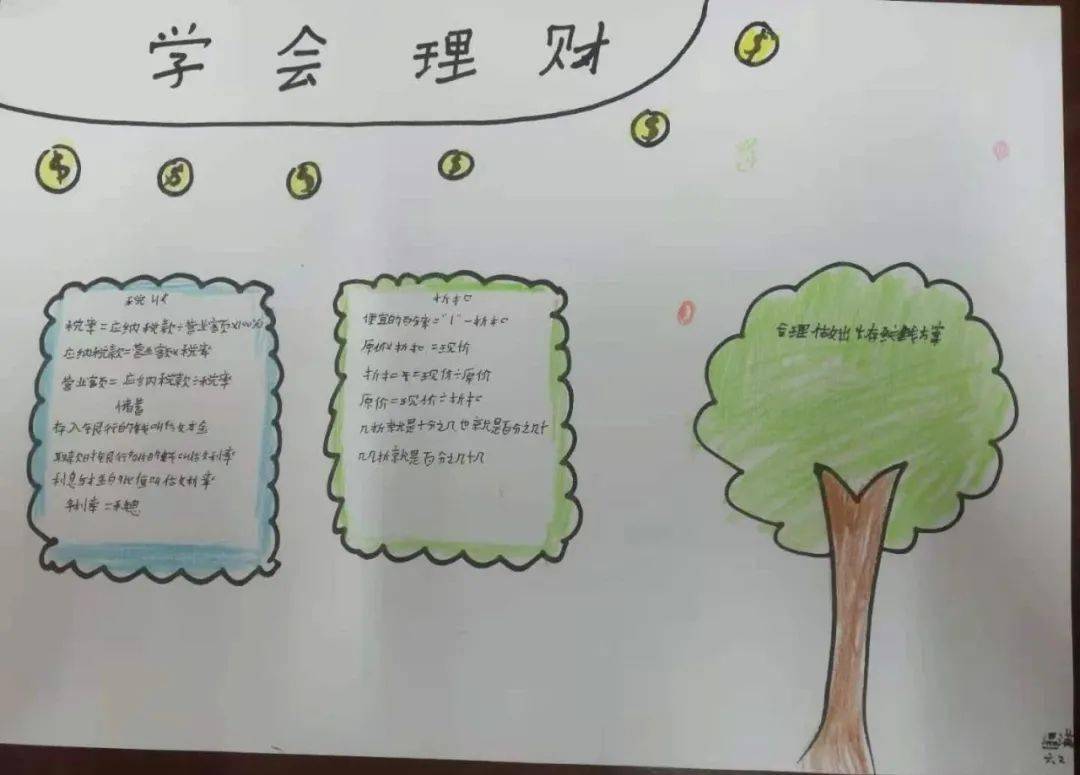 学会理财
$
$
$
$
$
$
税收
税率=应纳税款÷营业额×100%
应纳税款=营业额×税率
营业额=应纳税款÷税率
储蓄
存入银行的钱叫做本金
银行的钱叫做利率
利息与本金的比值叫做利率
折扣
便宜的百分率="1"-折扣
原价×折扣=现价
折扣=现价÷原价
原价=现价÷折扣
几折就是十分之几也就是百分之几十
几几折就是百分之几十几
合理做出生存钱方案
六2